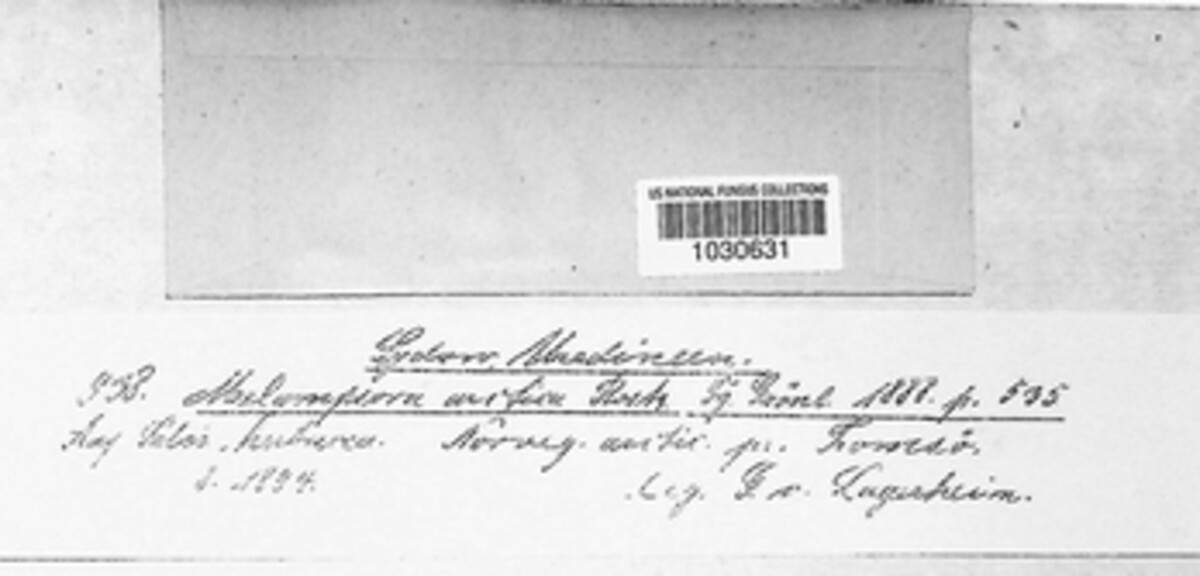 US NATIONAL FUNGUS COLLECTIONS
1030631
Sydow, Uredineen.
938. Melampsora arctica Rostr. Fg. Grönl. 1888. p. 535
Auf Salix herbacea. Norveg. arctic. pr. Tromsö.
8. 1894. Leg. G. v. Lagerheim.